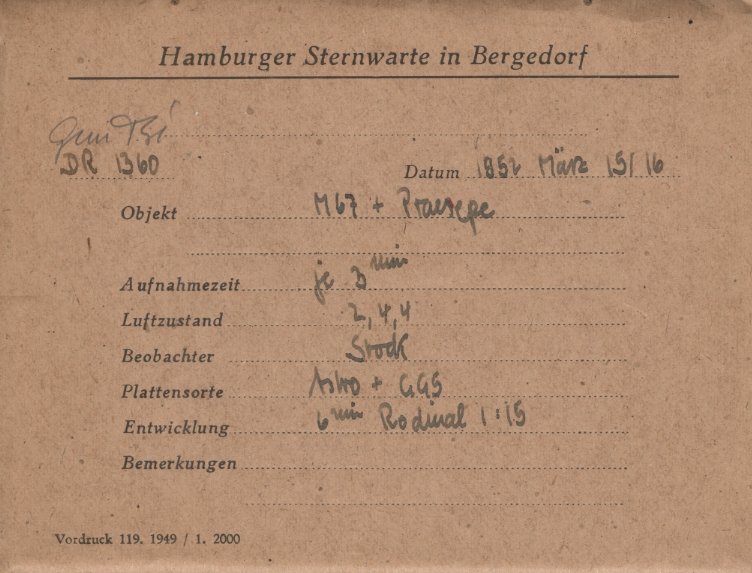 Hamburger Sternwarte in Bergedorf
DR 1360
Datum 1952 März 15/16
Objekt M67 + Praesepe
Aufnahmezeit je 3 min
Luftzustand 2,4,4
Beobachter Stock
Plattensorte Astro + GG5
Entwicklung 6 min Rodinal 1:15
Bemerkungen
Vordruck 119. 1949 / 1. 2000